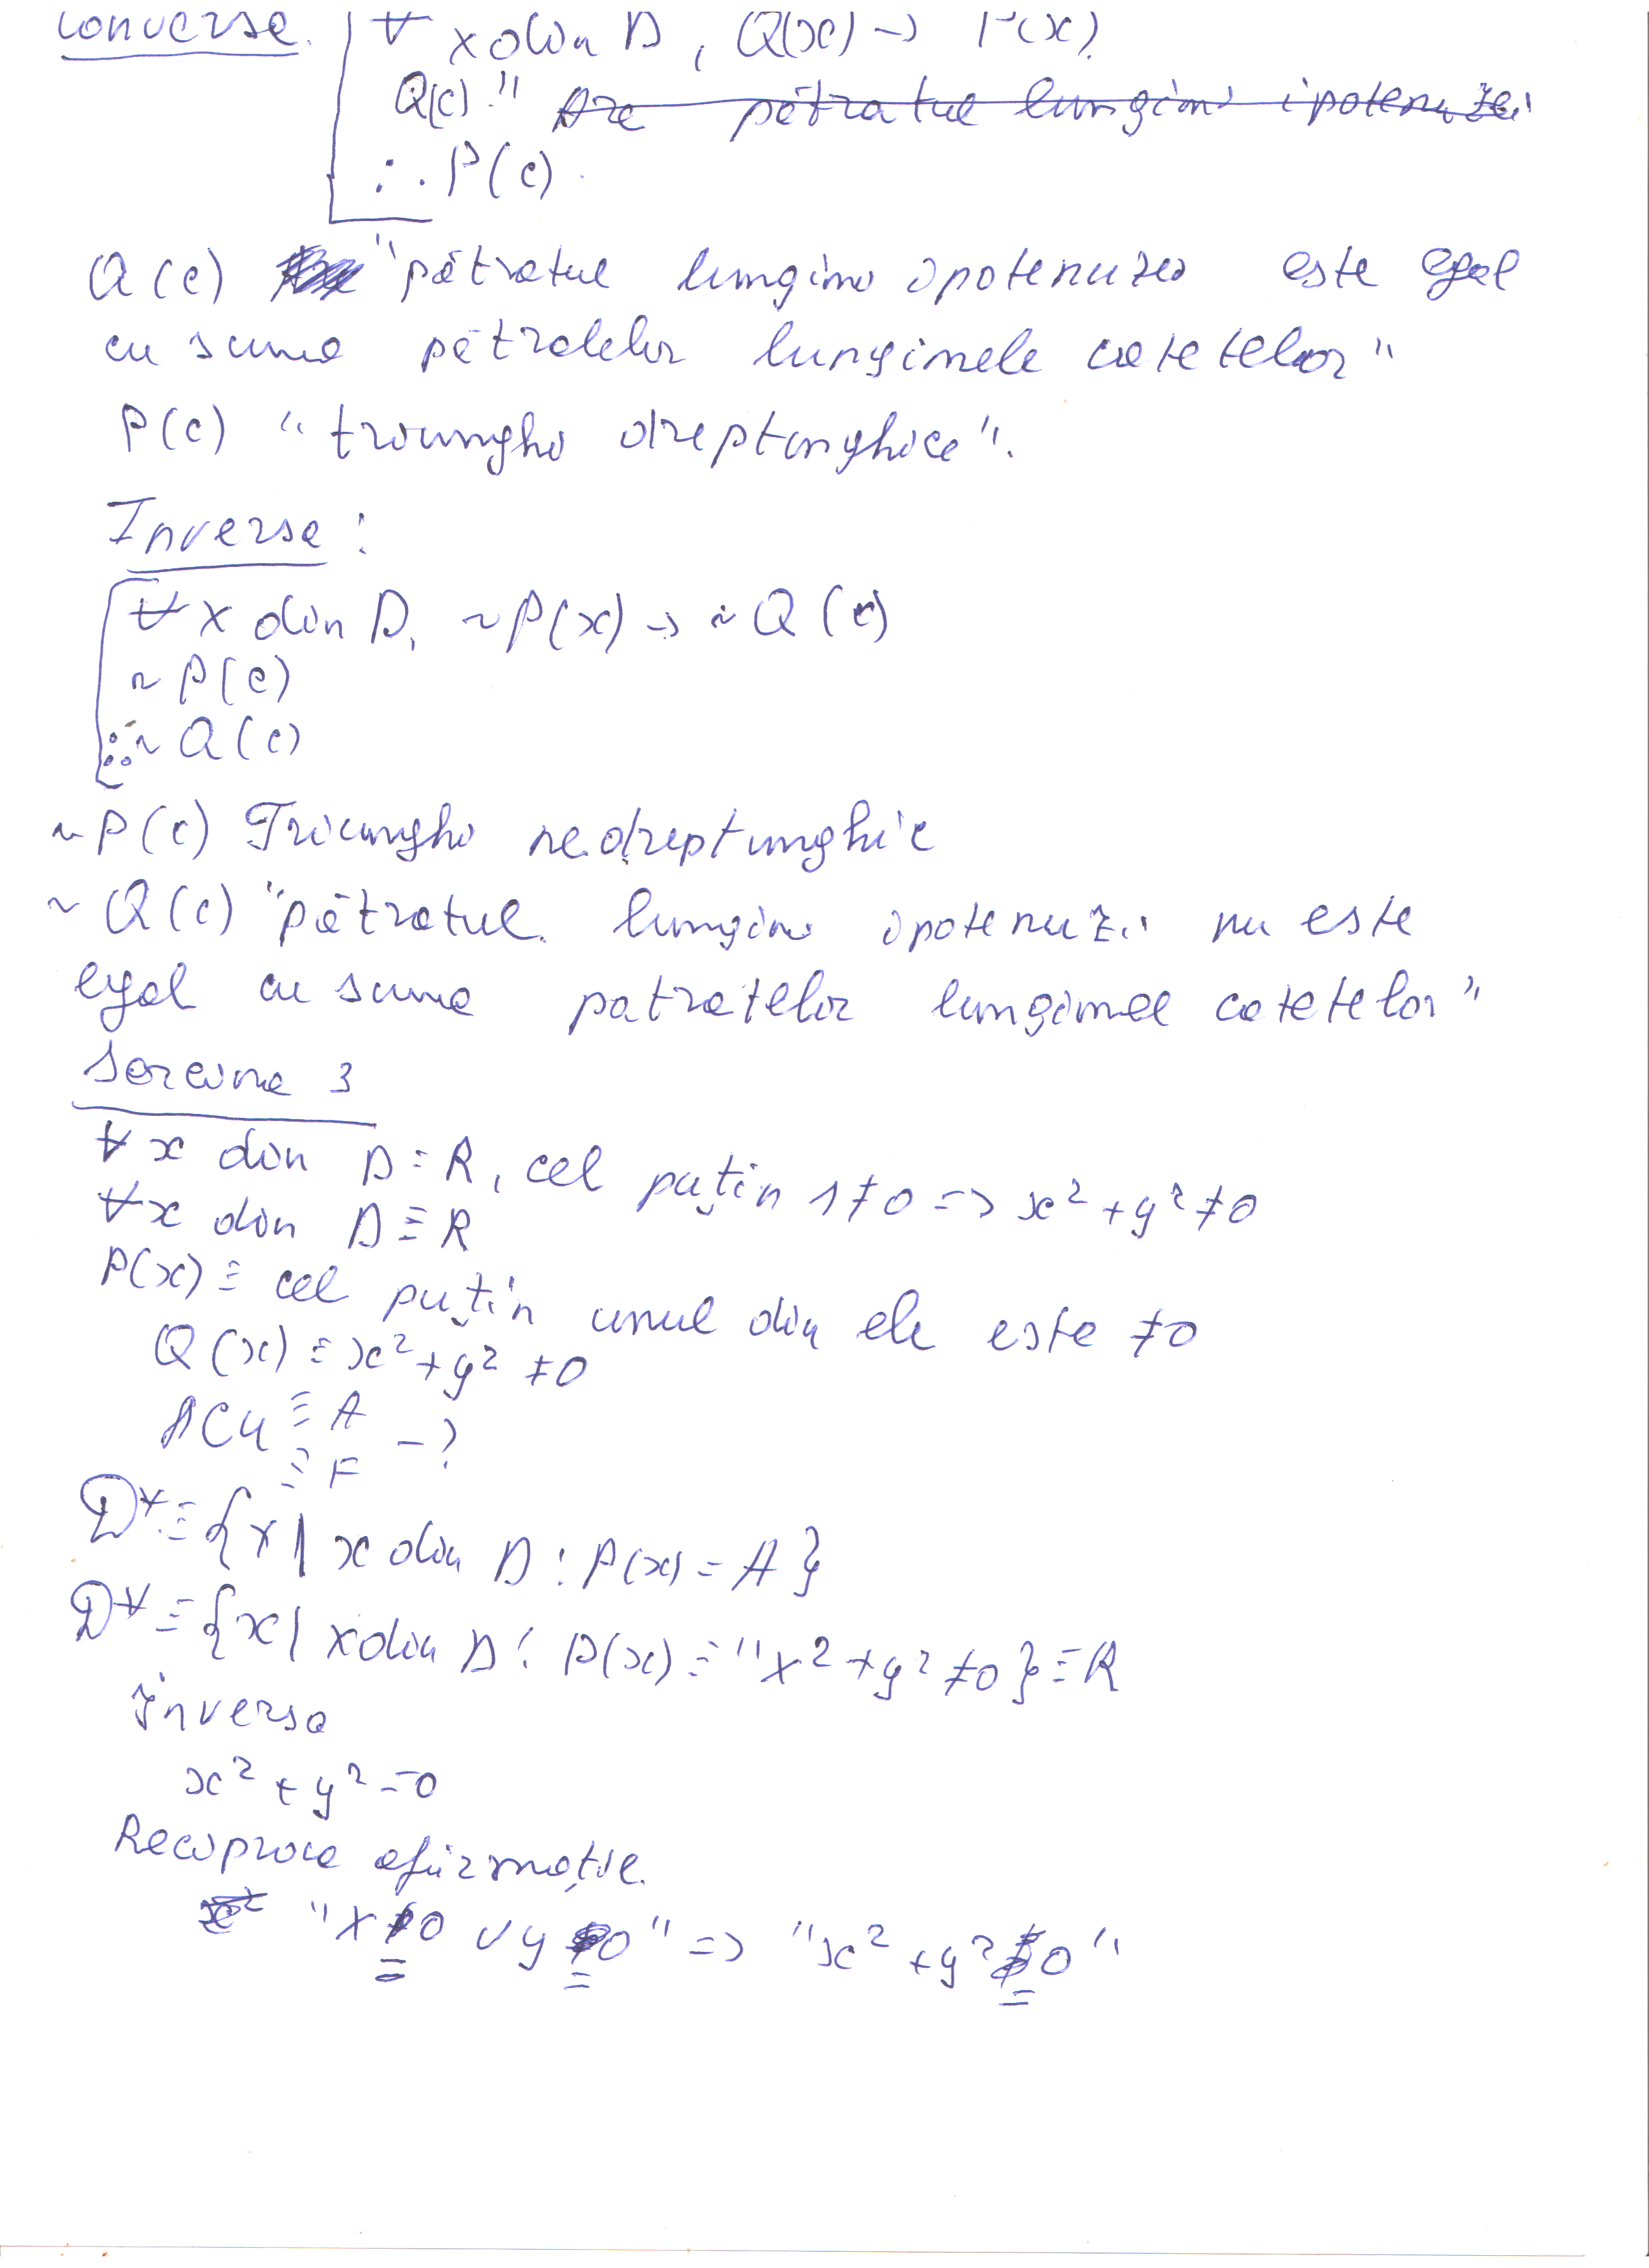 Conversa. ∀ x din D, Q(x) → P(x).
Q(c) " Are pătratul lungimi ipotenuzei
∴ P(c).
Q(c) "pătratul lungimi ipotenuzei este egal
cu suma pătratelor lungimele catetelor"
P(c) "triunghi dreptunghice".
Inversa:
∀ x din D, ~P(x) → ~Q(c)
~P(c)
∴ ~Q(c)
~P(c) Triunghi nedreptunghic
~Q(c) "pătratul lungimi ipotenuzei nu este
egal cu suma patratelor lungimee catetelor"
Sarcina 3
∀ x din D ≡ R, cel puțin 1≠0 => x² + y² ≠ 0
∀x din D ≡ R
P(x) ≡ cel puțin unul din ele este ≠0
Q(x) ≡ x² + y² ≠ 0
ACU ≡ A
≡ F –?
D^∀ ≡ {x | x din D : P(x) = A}
D^∀ ≡ {x | x din D : P(x) ≡ "x² + y² ≠ 0} ≡ R
Inversa
x² + y² = 0
Reciproca afirmație.
"x = 0 ∨ y = 0" => "x² + y² = 0"